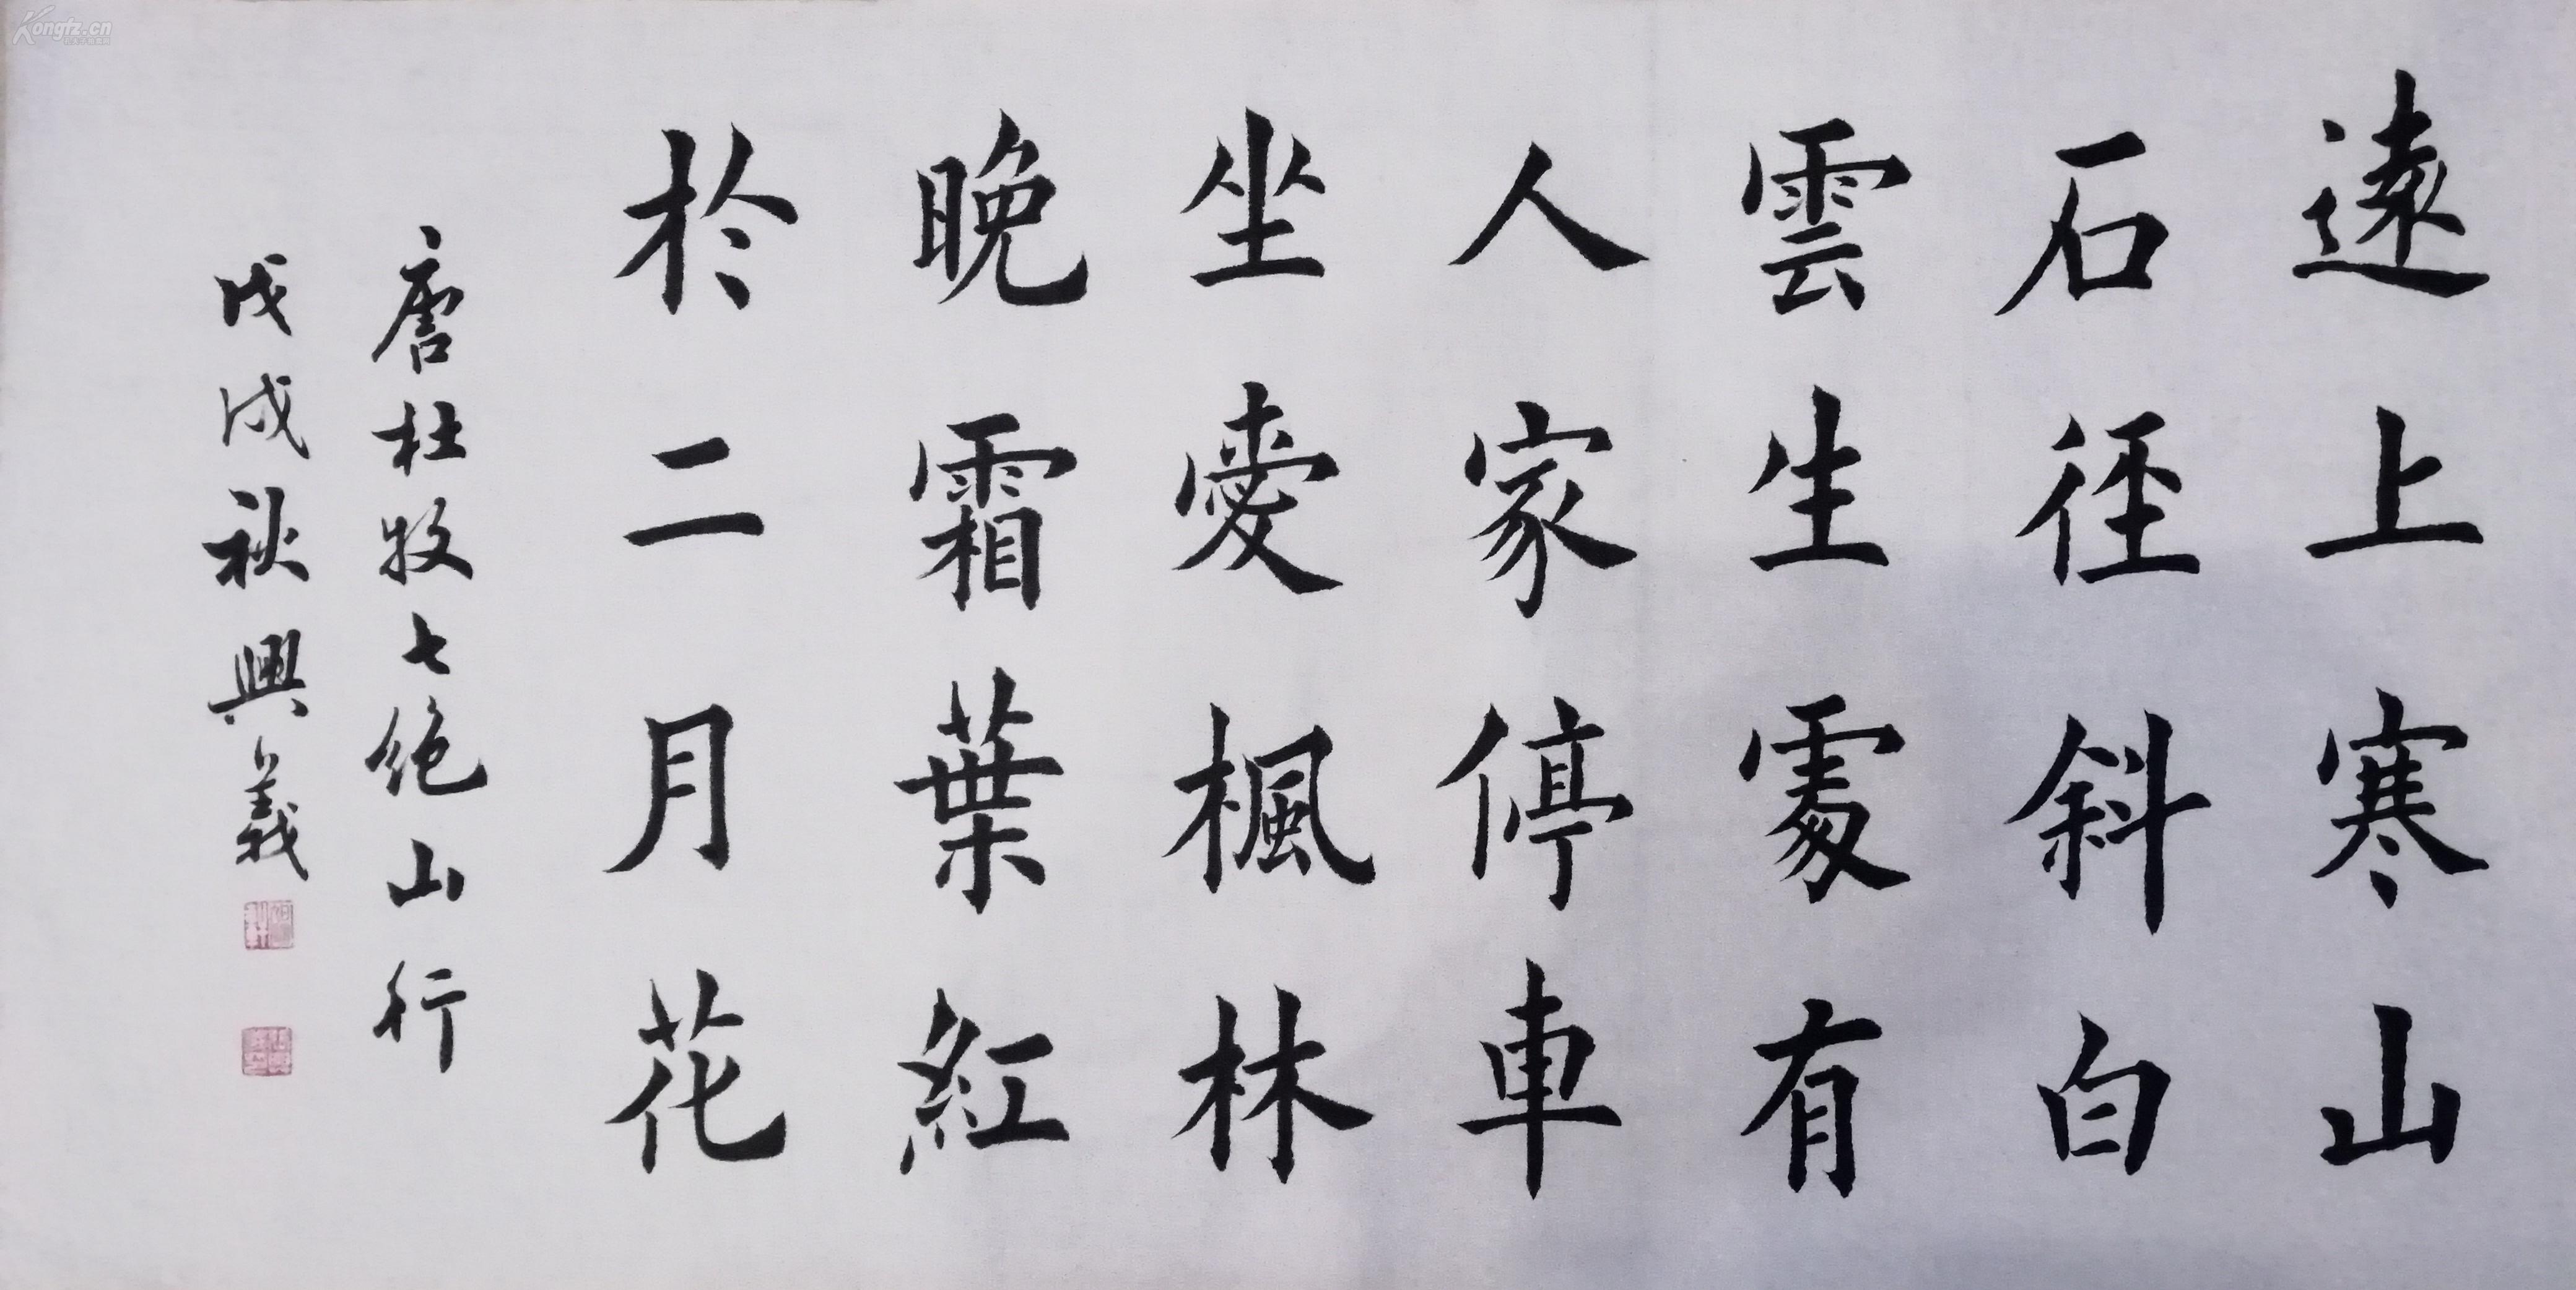 遠上寒山
石徑斜白
雲生處有
人家停車
坐愛楓林
晚霜葉紅
於二月花
唐杜牧七絕山行
戊戌秋興義
Kongfz.cn